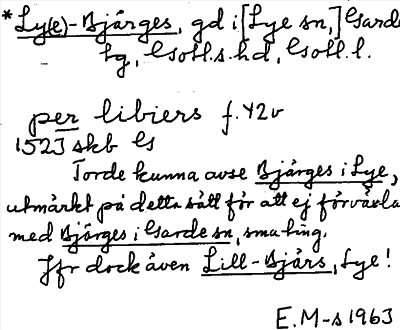 *Ly(e)-Bjärges, gd i [Lye sn,] Garde
tg, Gotl. s. hd, Gotl. l.
per libiers f. 42v
1523 skb G
Torde kunna avse Bjärges i Lye,
utmärkt på detta sätt för att ej förväxla
med Bjärges i Garde sn, sma ting.
Jfr dock även Lill-Bjärs, Lye!
E. M-s 1963